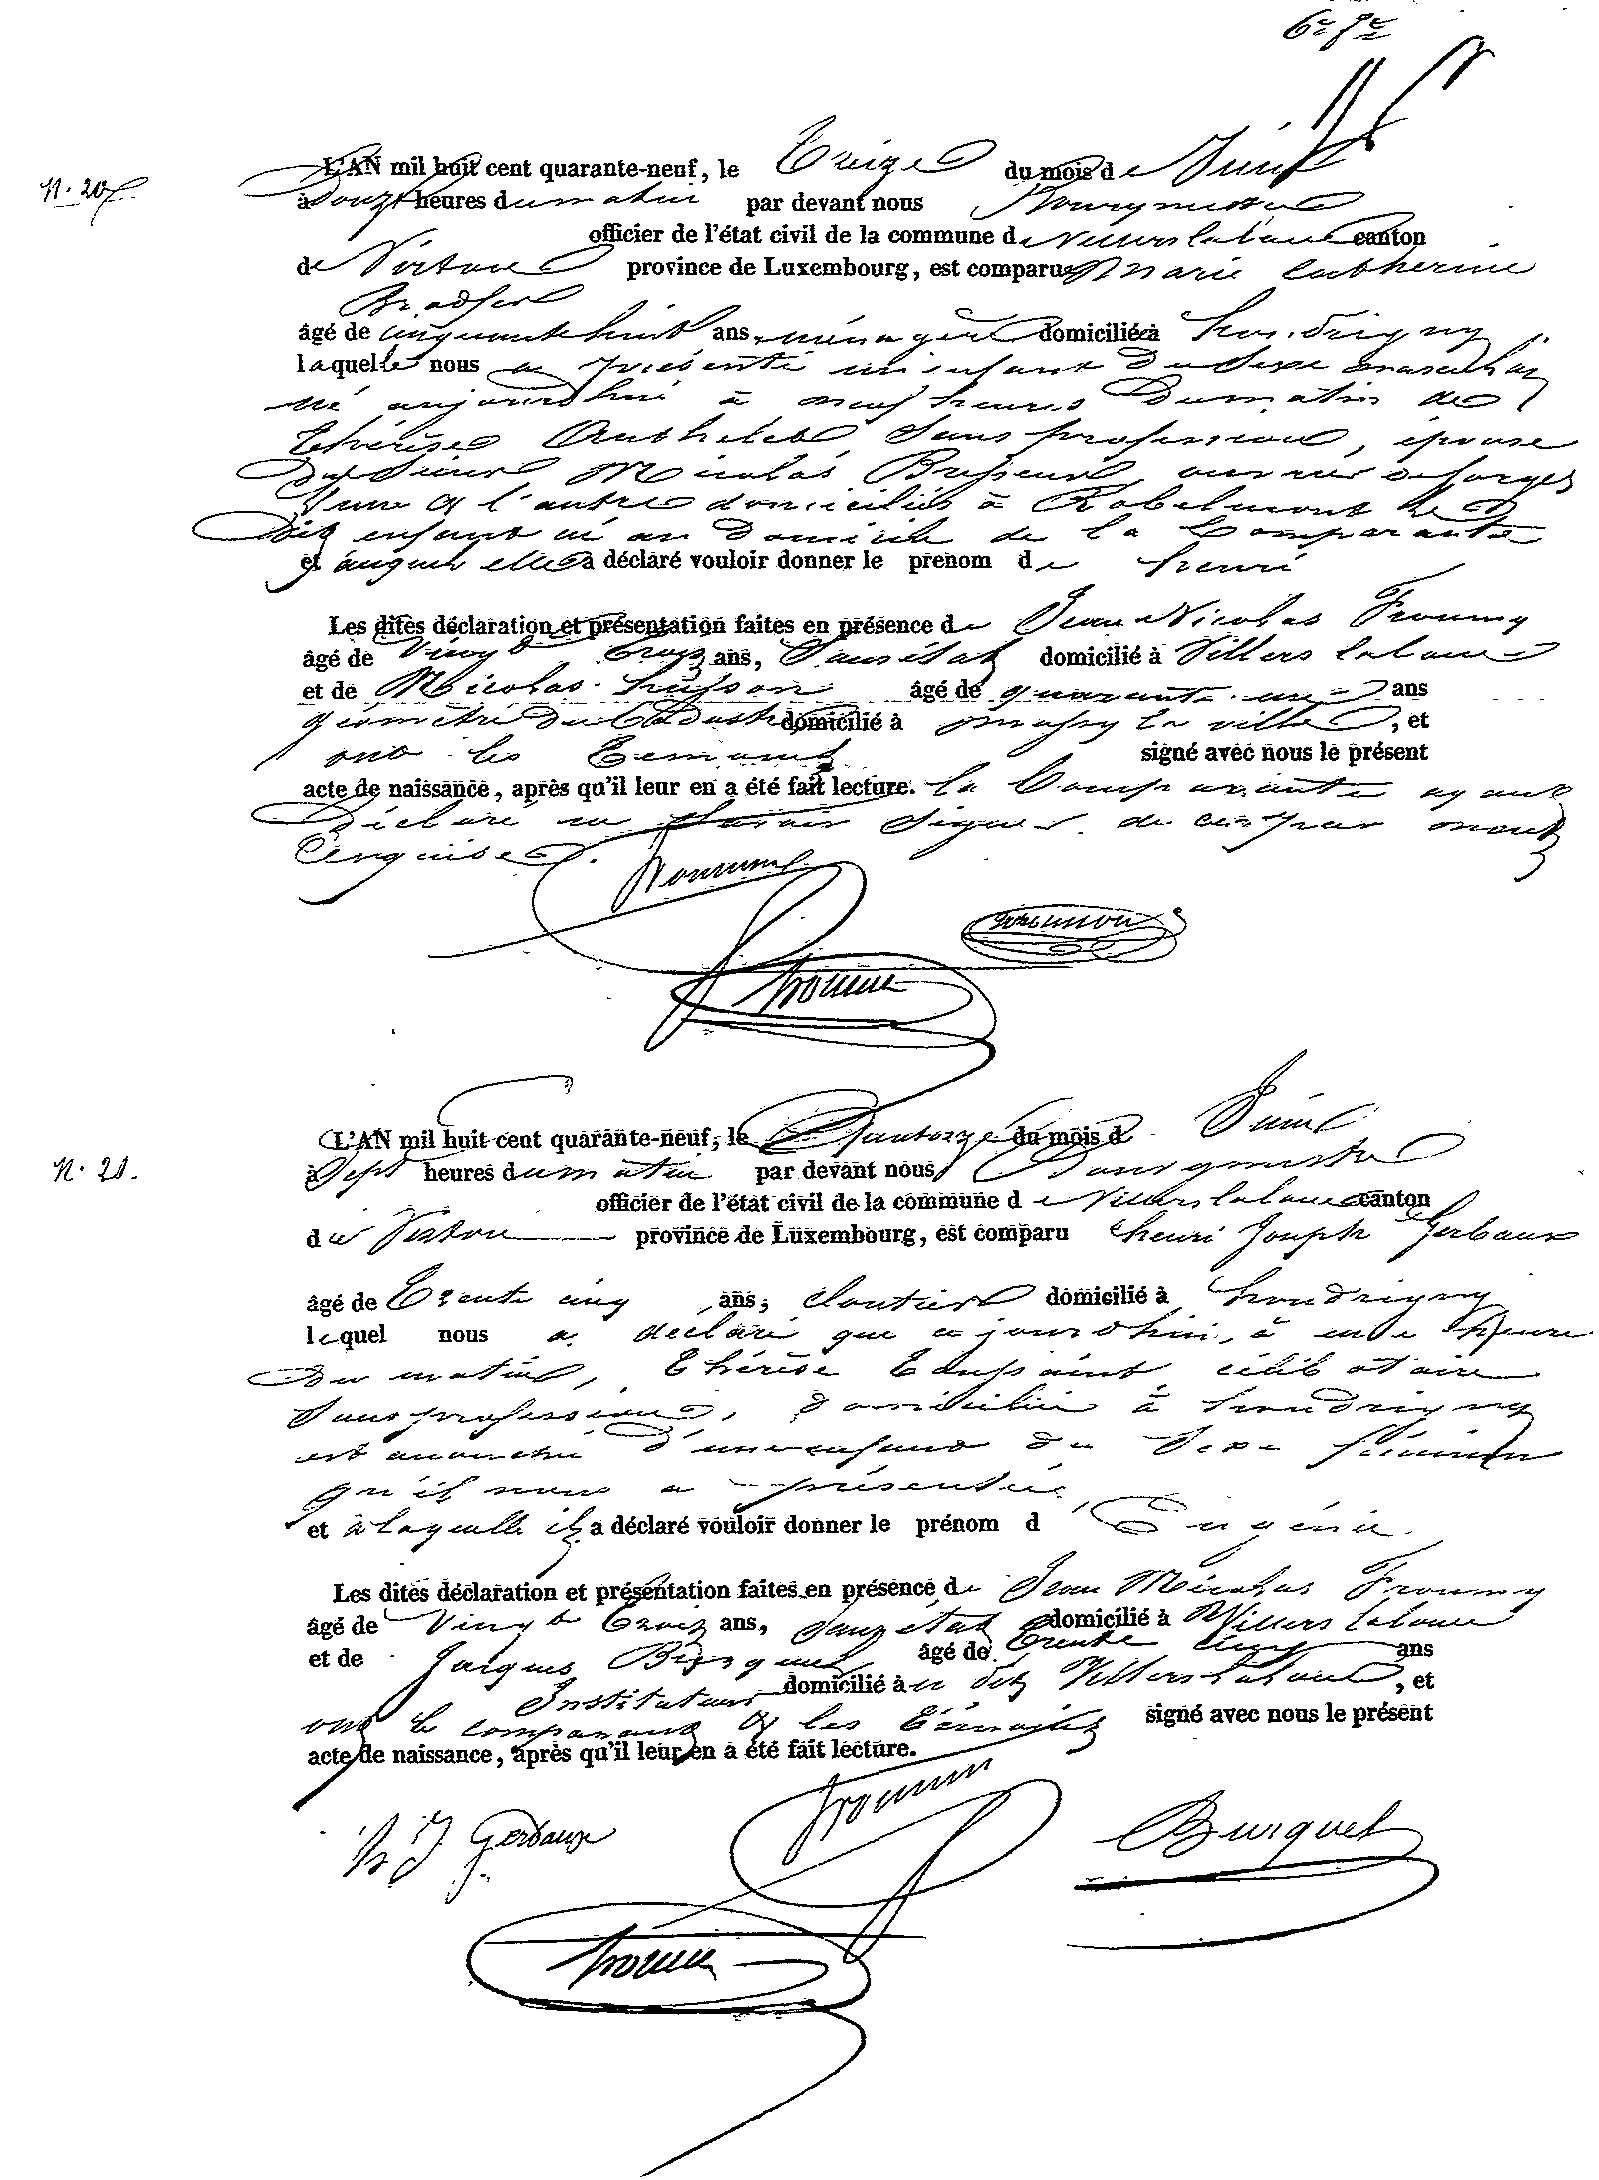 6e fe
N. 20
L'AN mil huit cent quarante-neuf, le Treize du mois de Juin
à Douze heures du matin par devant nous Bourgmestre
officier de l'état civil de la commune de Villers la loue canton
de Virton province de Luxembourg, est comparue Marie Catherine
âgé de cinquante huit ans, ménagère domiciliée à houdrigny
laquelle nous a présenté un enfant du sexe masculin
né aujourdhui à neuf heures du matin de
thérèse sans profession, épouse
du sieur Nicolas ouvrier de forges
l'une & l'autre domiciliés à Robelmont le
dit enfant né au domicile de la Comparante
et auquel elle a déclaré vouloir donner le prénom de henri
Les dites déclaration et présentation faites en présence de Jean Nicolas Froumy
âgé de Vingt trois ans, Sans état domicilié à Villers la loue
et de Nicolas husson âgé de quarante un ans
géomètre du Cadastre domicilié à mussy la ville, et
ont les témoins signé avec nous le présent
acte de naissance, après qu'il leur en a été fait lecture. la Comparante ayant
déclaré ne savoir signer de ce par nous
enquise.
N. 21.
L'AN mil huit cent quarante-neuf, le Quatorze du mois d Juin
à Sept heures du matin par devant nous, Bourgmestre
officier de l'état civil de la commune de Villers la loue canton
de Virton province de Luxembourg, est comparu henri Joseph Gerbaux
âgé de Trente cinq ans, cloutier domicilié à houdrigny
lequel nous a déclaré que aujourdhui, à une heure
du matin, thérèse toussaint célibataire
sans profession, domiciliée à houdrigny
est accouchée d'une enfant du sexe féminin
qu'il nous a présentée
et à laquelle il a déclaré vouloir donner le prénom d Eugénie.
Les dites déclaration et présentation faites en présence de Jean Nicolas Froumy
âgé de Vingt trois ans, sans état domicilié à Villers la loue
et de Jacques Burquel âgé de trente cinq ans
Instituteur domicilié au dit Villers la loue, et
ont le comparant & les témoins signé avec nous le présent
acte de naissance, après qu'il leur en a été fait lecture.
h J Gerbaux
Burquel